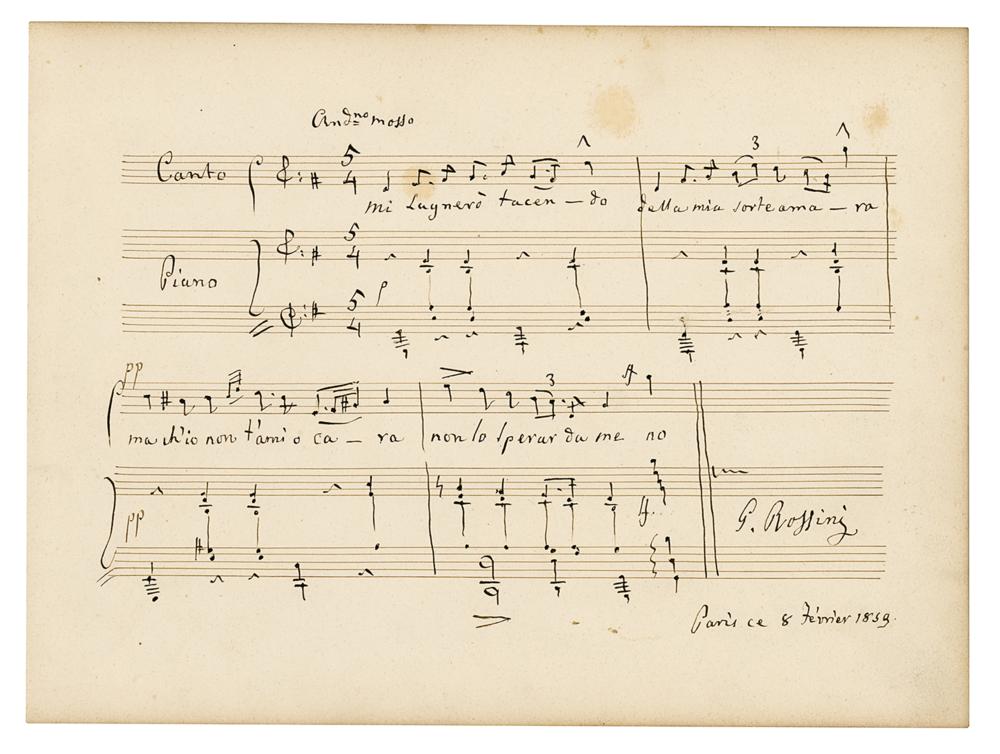 And.no mosso
Canto 5 4 3
mi Lagnerò tacen – do della mia sorte ama – ra
5 4
Piano
p 5 4
pp 3
ma ch'io non t'ami o ca – ra non lo sperar da me no
pp
G. Rossini
Paris ce 8 Février 1859.